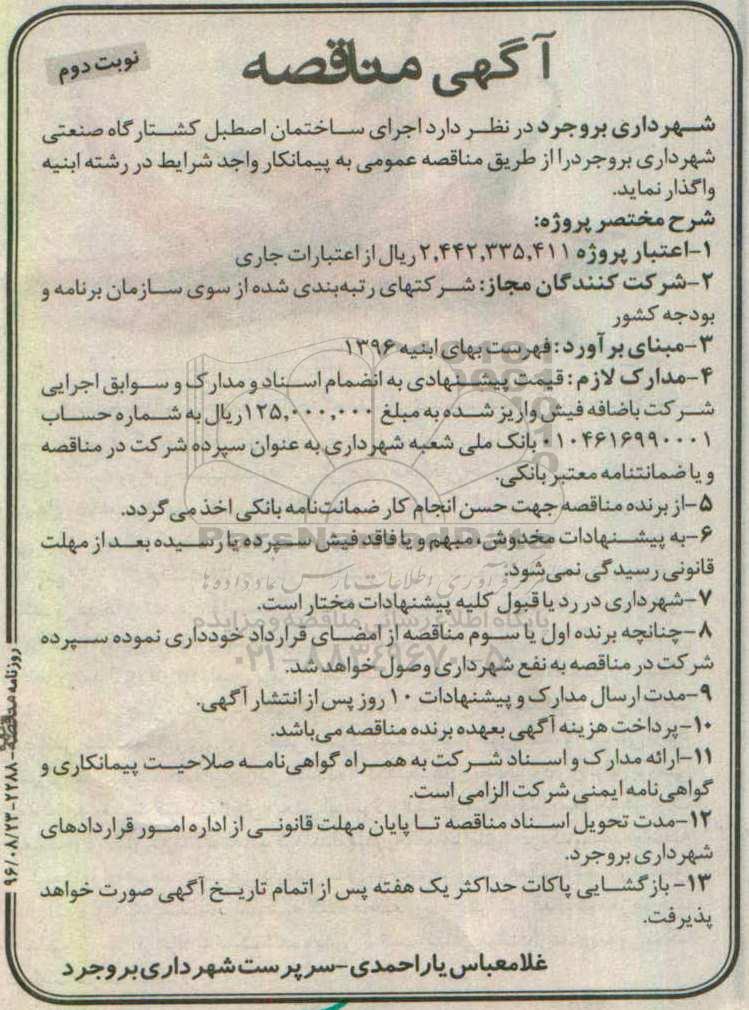 نوبت دوم
آگهی مناقصه
شهرداری بروجرد در نظر دارد اجرای ساختمان اصطبل کشتارگاه صنعتی
شهرداری بروجرد را از طریق مناقصه عمومی به پیمانکار واجد شرایط در رشته ابنیه
واگذار نماید.
شرح مختصر پروژه:
۱-اعتبار پروژه ۲,۴۴۲,۳۳۵,۴۱۱ ریال از اعتبارات جاری
۲-شرکت کنندگان مجاز: شرکتهای رتبه‌بندی شده از سوی سازمان برنامه و
بودجه کشور
۳-مبنای برآورد: فهرست بهای ابنیه ۱۳۹۶
۴-مدارک لازم: قیمت پیشنهادی به انضمام اسناد و مدارک و سوابق اجرایی
شرکت باضافه فیش واریز شده به مبلغ ۱۲۵,۰۰۰,۰۰۰ ریال به شماره حساب
۰۱۰۴۶۱۶۹۹۰۰۰۱ بانک ملی شعبه شهرداری به عنوان سپرده شرکت در مناقصه
و یا ضمانتنامه معتبر بانکی.
۵-از برنده مناقصه جهت حسن انجام کار ضمانت‌نامه بانکی اخذ می‌گردد.
۶-به پیشنهادات مخدوش، مبهم و یا فاقد فیش سپرده یا رسیده بعد از مهلت
قانونی رسیدگی نمی‌شود.
۷-شهرداری در رد یا قبول کلیه پیشنهادات مختار است.
۸-چنانچه برنده اول یا سوم مناقصه از امضای قرارداد خودداری نموده سپرده
شرکت در مناقصه به نفع شهرداری وصول خواهد شد.
۹-مدت ارسال مدارک و پیشنهادات ۱۰ روز پس از انتشار آگهی.
۱۰-پرداخت هزینه آگهی بعهده برنده مناقصه می‌باشد.
۱۱-ارائه مدارک و اسناد شرکت به همراه گواهی‌نامه صلاحیت پیمانکاری و
گواهی‌نامه ایمنی شرکت الزامی است.
۱۲-مدت تحویل اسناد مناقصه تا پایان مهلت قانونی از اداره امور قراردادهای
شهرداری بروجرد.
۱۳- بازگشایی پاکات حداکثر یک هفته پس از اتمام تاریخ آگهی صورت خواهد
پذیرفت.
غلامعباس یاراحمدی-سرپرست شهرداری بروجرد
روزنامه مناقصه-۲۲۸۸-۹۶/۰۸/۲۳
ParsNamadData
پایگاه اطلاع رسانی مناقصه و مزایده